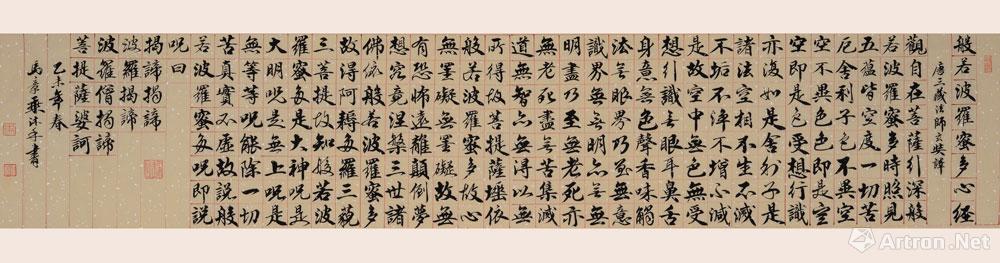 般若波羅蜜多心経
唐三藏法師玄奘譯
觀自在菩薩行深般
若波羅蜜多時照見
五蘊皆空度一切苦
厄舍利子色不異空
空不異色色即是空
空即是色受想行識
亦復如是舍利子是
諸法空相不生不滅
不垢不淨不增不減
是故空中無色無受
想行識無眼耳鼻舌
身意無色聲香味觸
法無眼界乃至無意
識界無無明亦無無
明盡乃至無老死亦
無老死盡無苦集滅
道無智亦無得以無
所得故菩提薩埵依
般若波羅蜜多故心
無罣礙無罣礙故無
有恐怖遠離顛倒夢
想究竟涅槃三世諸
佛依般若波羅蜜多
故得阿耨多羅三藐
三菩提故知般若波
羅蜜多是大神呪是
大明呪是無上呪是
無等等呪能除一切
苦真實不虛故說般
若波羅蜜多呪即說
呪曰
揭諦揭諦
波羅揭諦
波羅僧揭諦
菩提薩婆訶
乙未年春
沐手書
Artron.Net